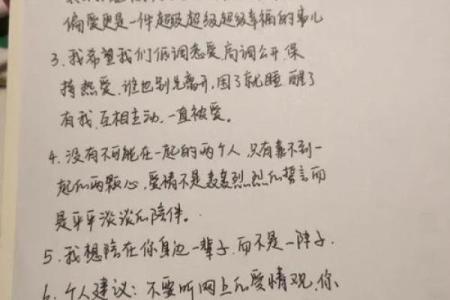 偏爱更是一件超级超级超级幸福的事儿
3.我希望我们低调恋爱,高调公开,保
持热爱,谁也别先离开,困了就睡 醒了
有我,互相主动,一直被爱。
4.没有不可能在一起的两个人,只有靠不到一
起的两颗心,爱情不是轰轰烈烈的誓言而
是平平淡淡的陪伴。
5.我想陪在你身边一辈子,而不是一阵子.
6.个人建议:不要听网上的爱情观,你